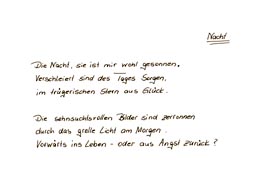 Nacht
Die Nacht, sie ist mir wohl gesonnen.
Verschleiert sind des Tages Sorgen,
im trügerischen Stern aus Glück.
Die sehnsuchtsvollen Bilder sind zerronnen
durch das grelle Licht am Morgen.
Vorwärts ins Leben - oder aus Angst zurück?